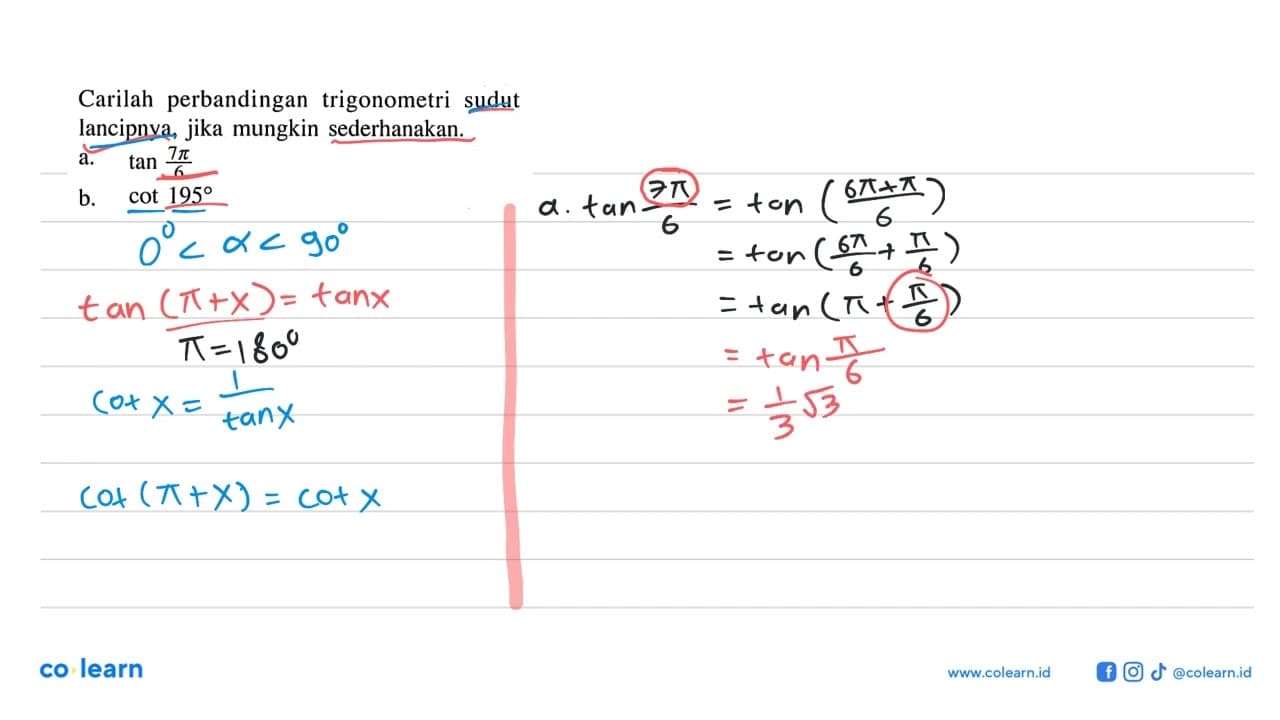 Carilah perbandingan trigonometri sudut
lancipnya, jika mungkin sederhanakan.
a. tan 7π/6
b. cot 195°
0° < α < 90°
tan (π+x) = tan x
π = 180°
cot x = 1/tan x
cot (π+x) = cot x
a. tan 7π/6 = tan (6π+π/6)
= tan (6π/6 + π/6)
= tan (π + π/6)
= tan π/6
= 1/3 √3
co learn
www.colearn.id
@colearn.id